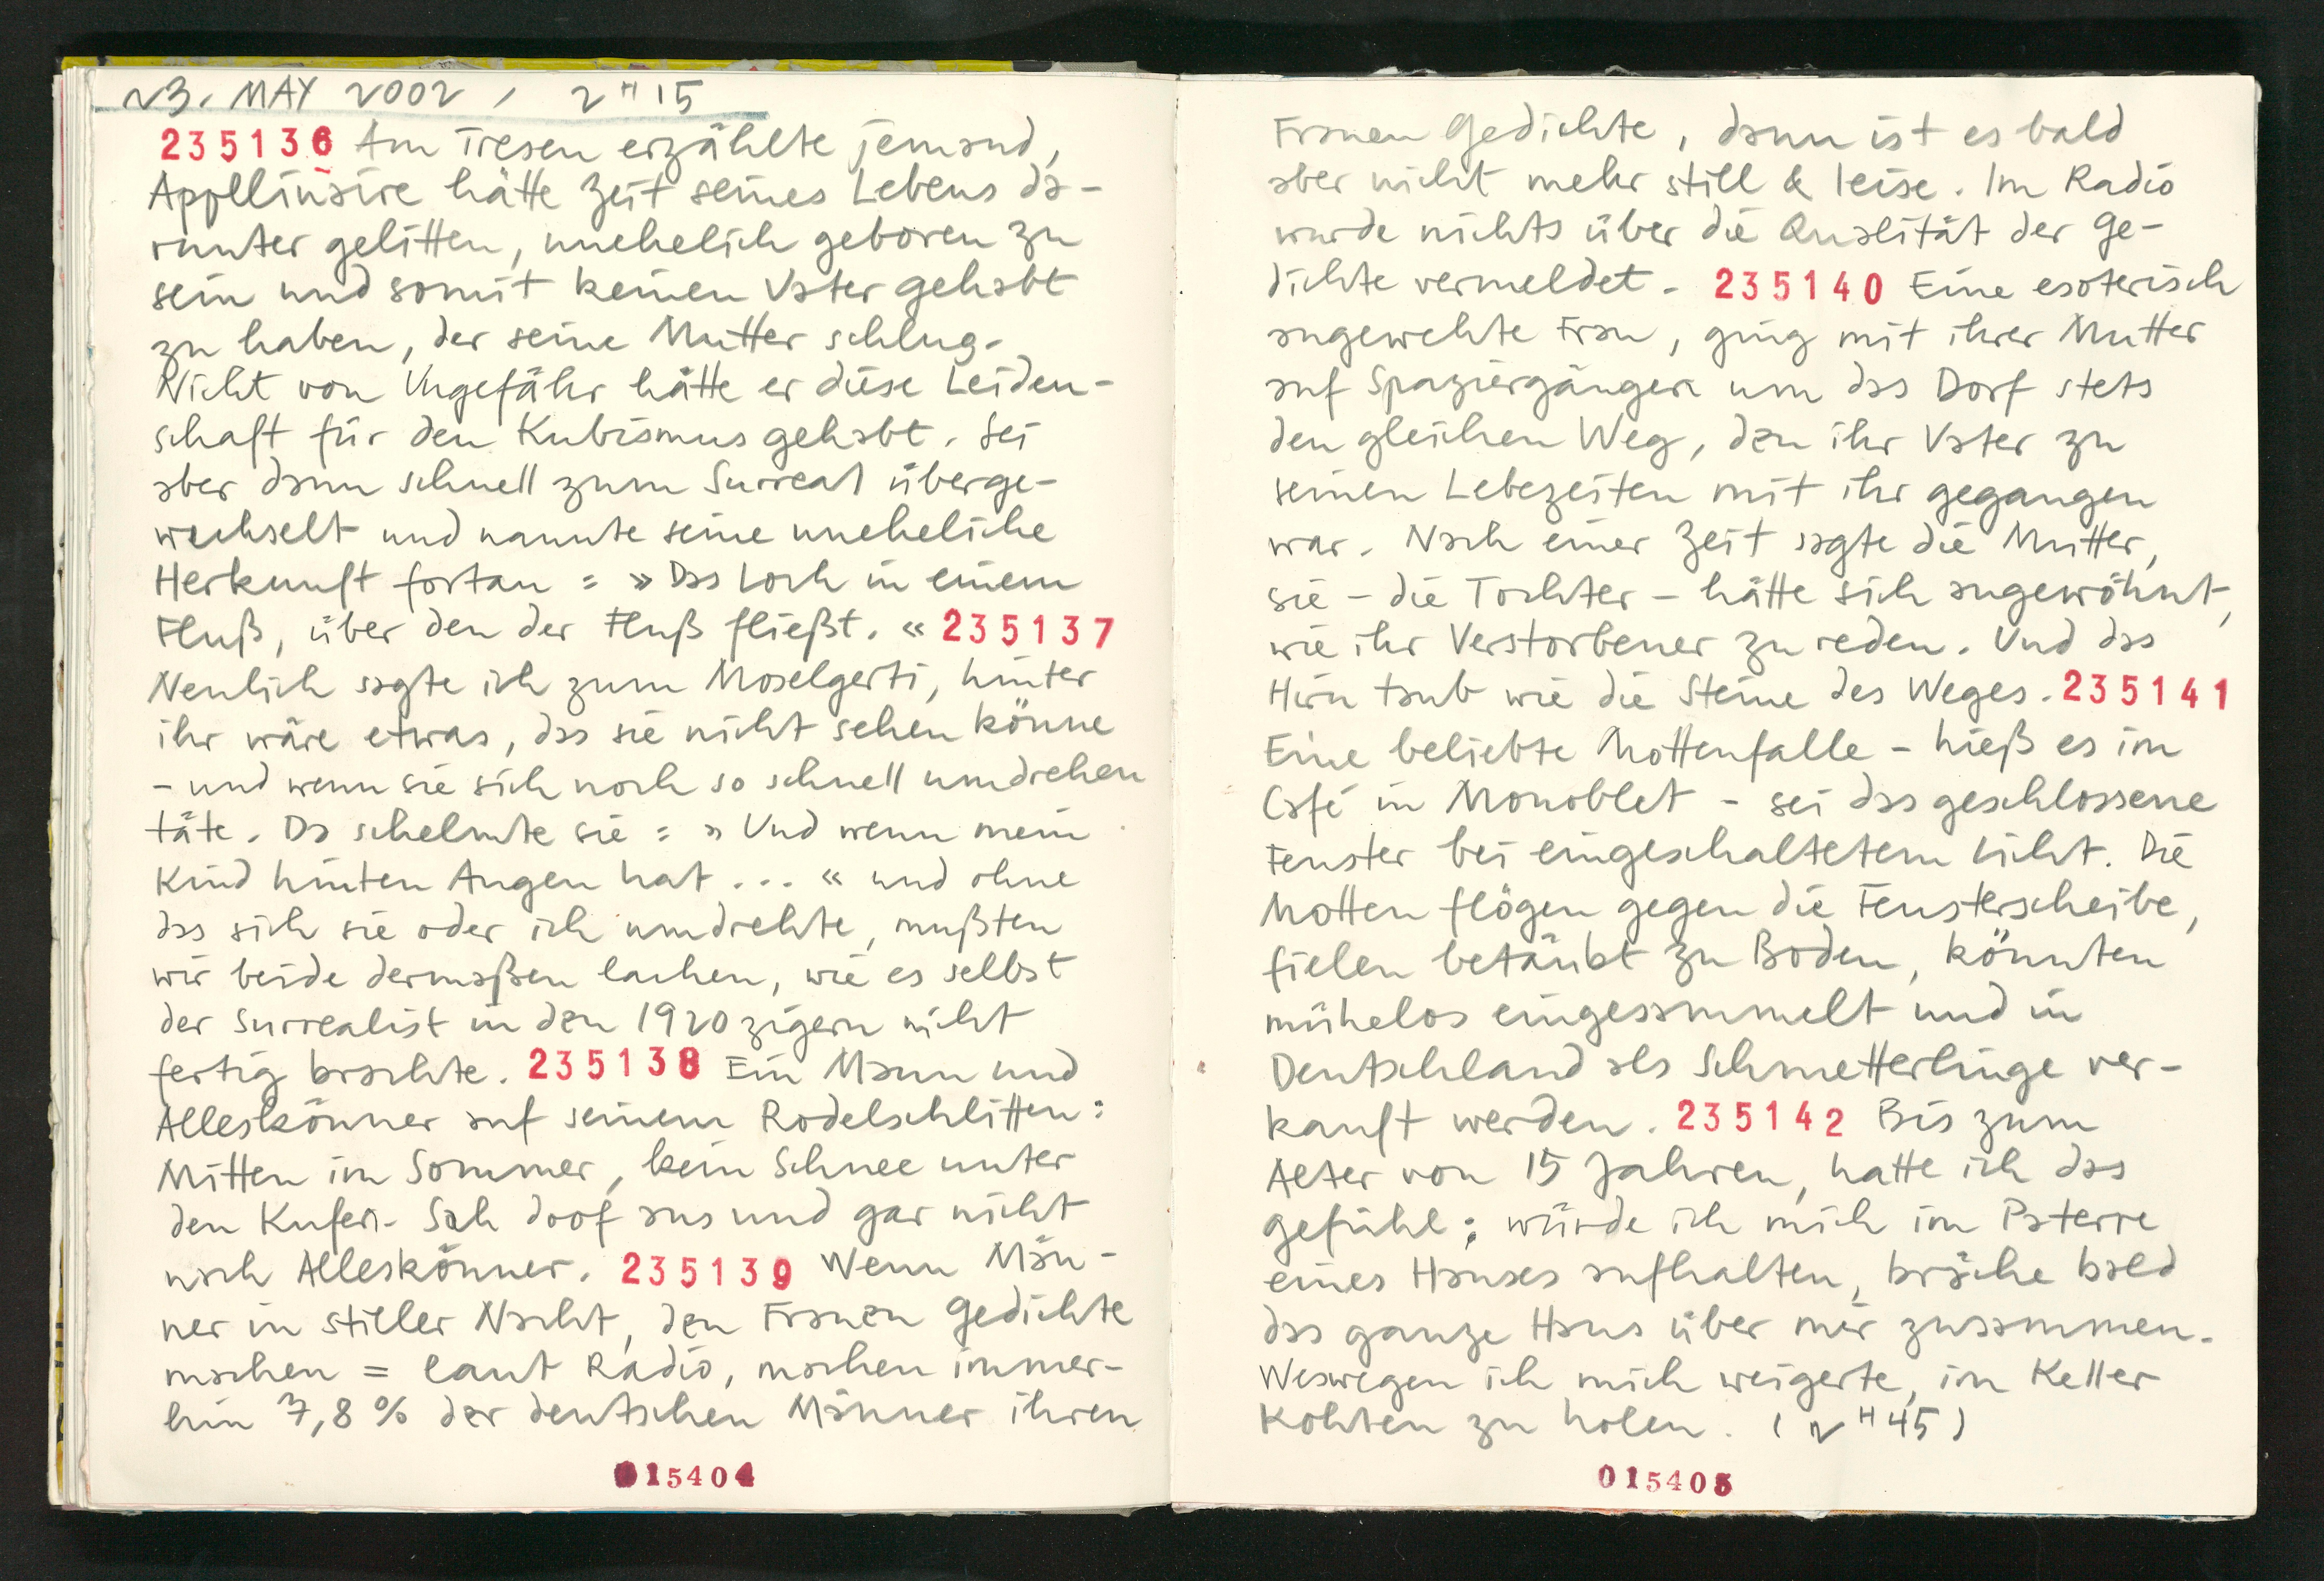 23. MAY 2002, 2H15
235136 Am Tresen erzählte jemand,
Appllinaire hätte zeit seines Lebens da-
runter gelitten, unehelich geboren zu
sein und somit keinen Vater gehabt
zu haben, der seine Mutter schlug.
Nicht von Ungefähr hätte er diese Leiden-
schaft für den Kubismus gehabt. Sei
aber dann schnell zum Surreal überge-
wechselt und nannte seine uneheliche
Herkunft fortan: »Das Loch in einem
Fluß, über den der Fluß fließt.« 235137
Neulich sagte ich zum Moselgerti, hinter
ihr wäre etwas, das sie nicht sehen könne
- und wenn sie sich noch so schnell umdrehen
täte. Da schelmte sie: »Und wenn mein
Kind hinten Augen hat...« und ohne
das sich sie oder ich umdrehte, mußten
wir beide dermaßen lachen, wie es selbst
der Surrealist in den 1920zigern nicht
fertig brachte. 235138 Ein Mann und
Alleskönner auf seinem Rodelschlitten:
Mitten im Sommer, kein Schnee unter
den Kufen. Sah doof aus und gar nicht
nach Alleskönner. 235139 Wenn Män-
ner in stiller Nacht, den Frauen Gedichte
machen = laut Radio, machen immer-
hin 7,8% der deutschen Männer ihren
015404
Frauen Gedichte, dann ist es bald
aber nicht mehr still & leise. Im Radio
wurde nichts über die Qualität der Ge-
dichte vermeldet. 235140 Eine esoterisch
angewehte Frau, ging mit ihrer Mutter
auf Spaziergängen um das Dorf stets
den gleichen Weg, den ihr Vater zu
seinen Lebezeiten mit ihr gegangen
war. Nach einer Zeit sagte die Mutter,
sie - die Tochter - hätte sich angewöhnt,
wie ihr Verstorbener zu reden. Und das
Hirn taub wie die Steine des Weges. 235141
Eine beliebte Mottenfalle - hieß es im
Café in Monoblet - sei das geschlossene
Fenster bei eingeschaltetem Licht. Die
Motten flögen gegen die Fensterscheibe,
fielen betäubt zu Boden, könnten
mühelos eingesammelt und in
Deutschland als Schmetterlinge ver-
kauft werden. 235142 Bis zum
Alter von 15 Jahren, hatte ich das
Gefühl; würde ich mich im Paterre
eines Hauses aufhalten, bräche bald
das ganze Haus über mir zusammen.
Weswegen ich mich weigerte, im Keller
Kohlen zu holen. (2H45)
015405